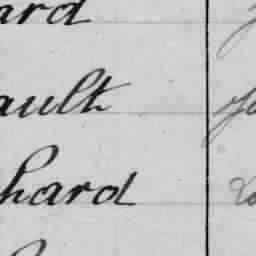 ard
ault
hard